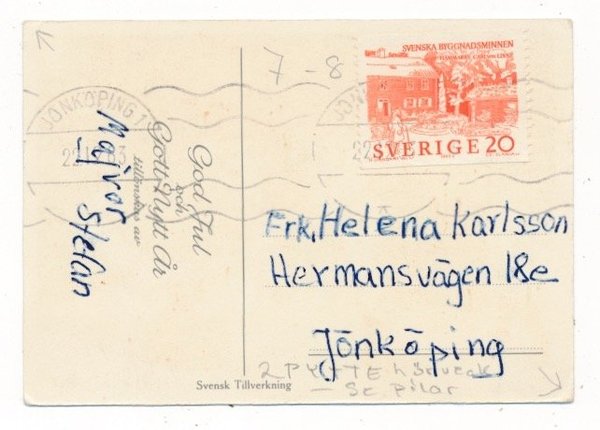 7-8
SVENSKA BYGGNADSMINNEN
HAMMARBY CARL VON LINNÉ
SVERIGE 20
JÖNKÖPING 1
God Jul
och
Gott Nytt År
tillönskas av
Majvor
Stefan
Frk, Helena Karlsson
Hermansvägen 18e
Jönköping
2 PYTTE hörnveck
se pilar
Svensk Tillverkning